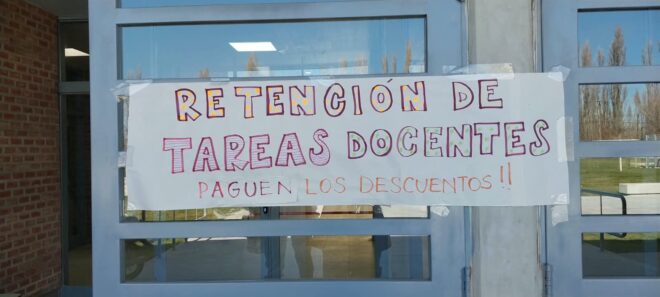 RETENCIÓN DE
TAREAS DOCENTES
PAGUEN LOS DESCUENTOS!!